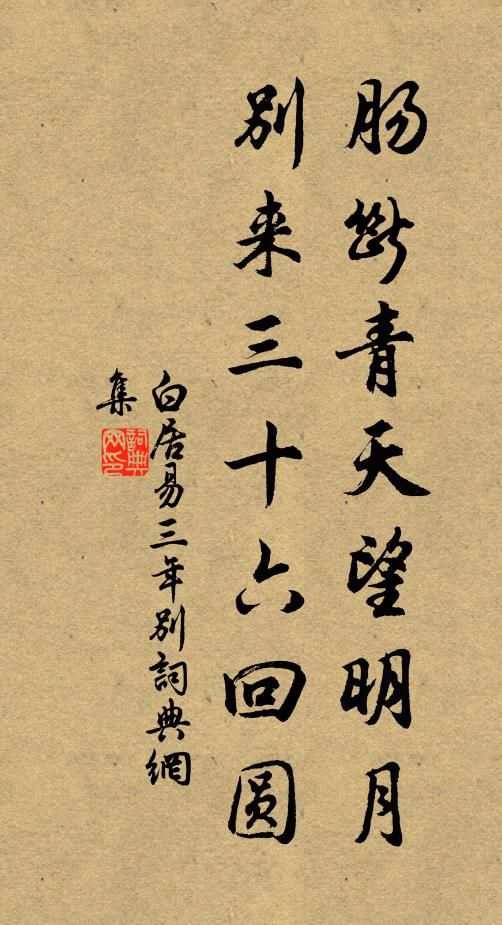 肠断青天望明月
别来三十六回圆
白居易三年别詞典網
集
詞典网印